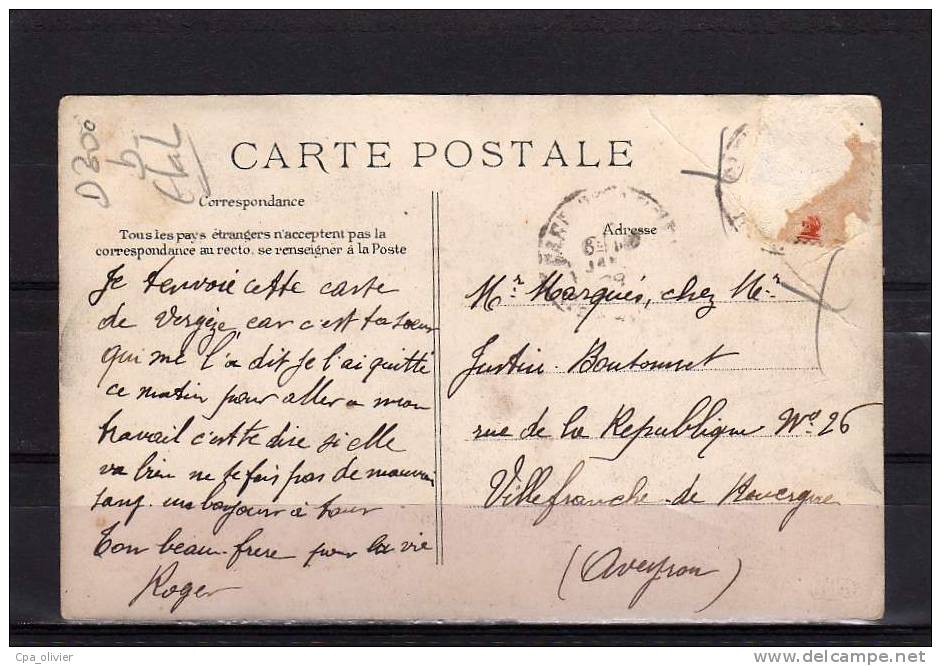 D 300
b
CARTE POSTALE
Correspondance
Tous les pays étrangers n'acceptent pas la
correspondance au recto. se renseigner à la Poste
Adresse
Je t'envoie cette carte
de Vergèze, car c'est ta sœur
qui me l'a dit Je l'ai quitté
ce matin pour aller a mon
travail c'est te dire si elle
va bien ne te fais pas de mauvai
sang. un bonjour a tous
Ton beau-frere pour la vie
Roger
Mr Marqués, chez Mr
Justin Boutonnet
rue de la Republique No 26
Villefranche-de Rouergue
(Aveyron)
Cpa_olivier
delcampe.net